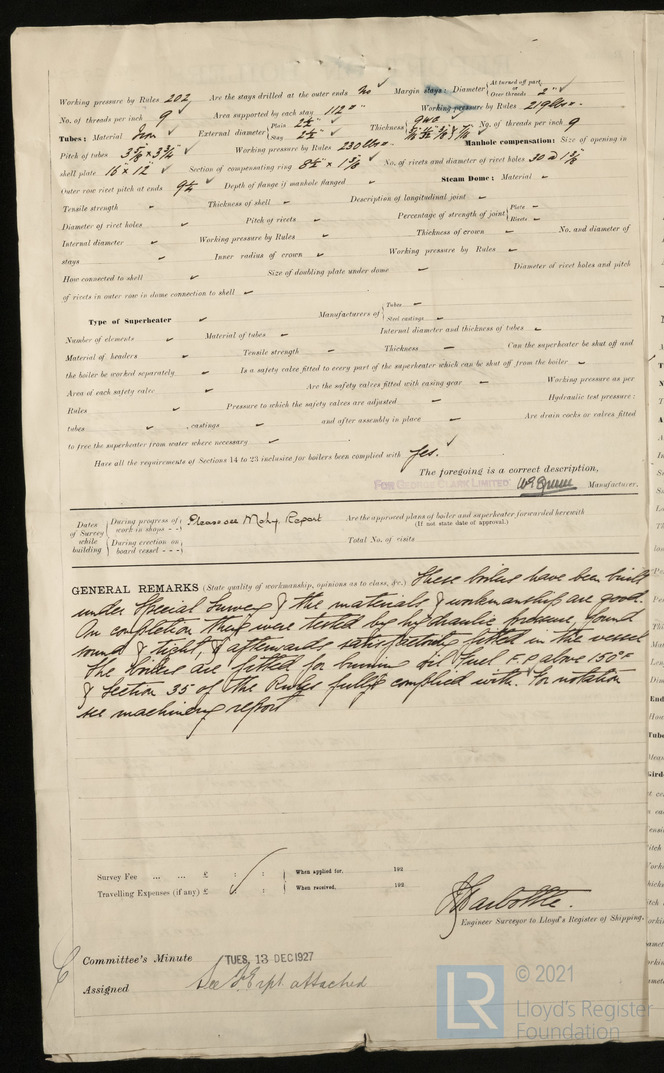 Working pressure by Rules 202 Are the stays drilled at the outer ends No Margin stays: Diameter { At turned off part, or Over threads 2"
No. of threads per inch 9 Area supported by each stay 112 □" Working pressure by Rules 219 lbs □".
Tubes: Material Iron External diameter { Plain 2½" Stay 2½" Thickness { 9 WG No. of threads per inch 9
Pitch of tubes Working pressure by Rules 230 lbs □". Manhole compensation: Size of opening in
shell plate 16" × 12" Section of compensating ring No. of rivets and diameter of rivet holes
Outer row rivet pitch at ends Depth of flange if manhole flanged Steam Dome: Material -
Tensile strength Thickness of shell Description of longitudinal joint
Diameter of rivet holes Pitch of rivets Percentage of strength of joint { Plate Rivets
Internal diameter Working pressure by Rules Thickness of crown No. and diameter of
stays Inner radius of crown Working pressure by Rules
How connected to shell Size of doubling plate under dome Diameter of rivet holes and pitch
of rivets in outer row in dome connection to shell
Type of Superheater Manufacturers of { Tubes Steel castings
Number of elements Material of tubes Internal diameter and thickness of tubes
Material of headers Tensile strength Thickness Can the superheater be shut off and
the boiler be worked separately Is a safety valve fitted to every part of the superheater which can be shut off from the boiler
Area of each safety valve Are the safety valves fitted with easing gear Working pressure as per
Rules Pressure to which the safety valves are adjusted Hydraulic test pressure:
tubes , castings and after assembly in place Are drain cocks or valves fitted
to free the superheater from water where necessary
Have all the requirements of Sections 14 to 23 inclusive for boilers been complied with Yes.
The foregoing is a correct description,
FOR GEORGE CLARK LIMITED Manufacturer.
Dates of Survey while building { During progress of work in shops - - Please see Mchy. Report Are the approved plans of boiler and superheater forwarded herewith
(If not state date of approval.)
During erection on board vessel - - - Total No. of visits
GENERAL REMARKS (State quality of workmanship, opinions as to class, &c.) These boilers have been built
under Special Survey & the materials & workmanship are good.
On completion they were tested by hydraulic pressure, found
sound & tight & afterwards satisfactorily fitted in the vessel
The boilers are fitted for burning oil fuel F.P. above 150°F
& Section 35 of the Rules fully complied with. For notation
see machinery report
Survey Fee ... ... £ : : When applied for, 192
Travelling Expenses (if any) £ : : When received, 192
Engineer Surveyor to Lloyd's Register of Shipping.
Committee's Minute TUES, 13 DEC 1927
Assigned See F.E. rpt. attached
LR © 2021
Lloyd's Register
Foundation